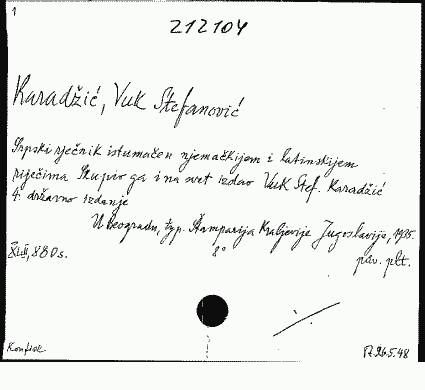 1
212104
Karadžić, Vuk Stefanović
Srpski rječnik istumačen njemačkijem i latinskijem
riječima Skupio ga i na svet izdao Vuk Stef. Karadžić
4. državno izdanje
U Beogradu, typ. Štamparija Kraljevije Jugoslavije, 1935.
XLII, 880 s. 8° pův. plt.
Konfisk. 26.5.48